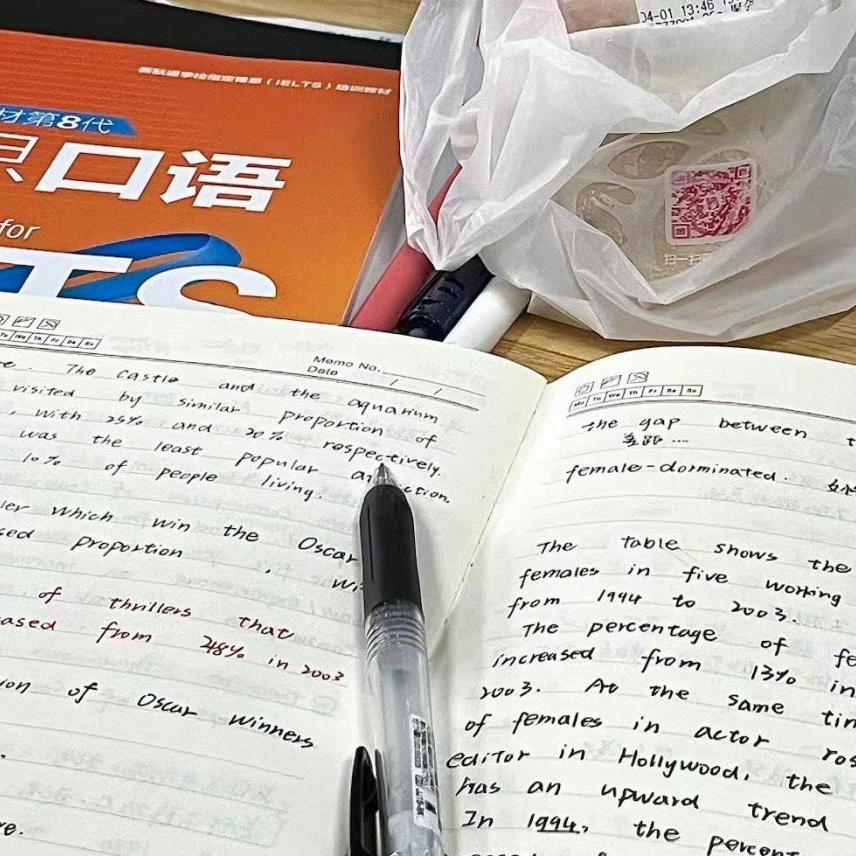 04-01 13:46
新航道学校指定雅思（IELTS）培训教材
材第8代
口语
for
TS
扫一扫
Memo No.
Date / /
Mo Tu We Th Fr Sa Su
The castle and the aquarium
visited by similar proportion of
, with 25% and 20% respectively.
was the least popular
10% of people living.
which win the Oscar
proportion ,
of thrillers that
from 48% in 2003
of Oscar winners
the gap between
差距 ....
female-dorminated.
The Table shows the
females in five working
from 1994 to 2003.
The percentage of fe
increased from 13% in
2003. At the same tim
of females in actor ros
editor in Hollywood, the
has an upward trend
In 1994, the percent